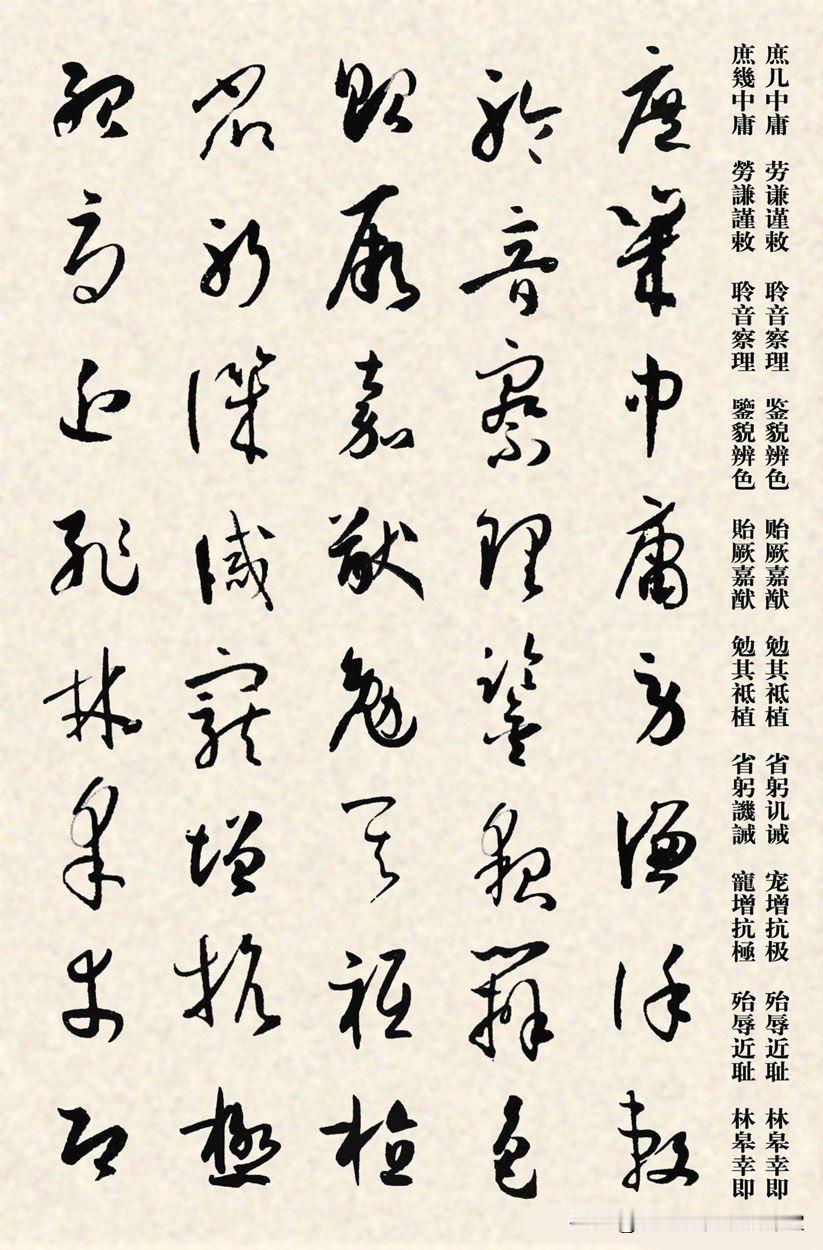 庶几中庸 劳谦谨敕 聆音察理 鉴貌辨色 贻厥嘉猷 勉其祗植 省躬讥诫 宠增抗极 殆辱近耻 林皋幸即
庶幾中庸 勞謙謹敕 聆音察理 鑒貌辨色 貽厥嘉猷 勉其祗植 省躬譏誡 寵增抗極 殆辱近耻 林皋幸即
庶幾中庸勞謙謹敕
聆音察理鑒貌辨色
貽厥嘉猷勉其祗植
省躬譏誡寵增抗極
殆辱近耻林皋幸即